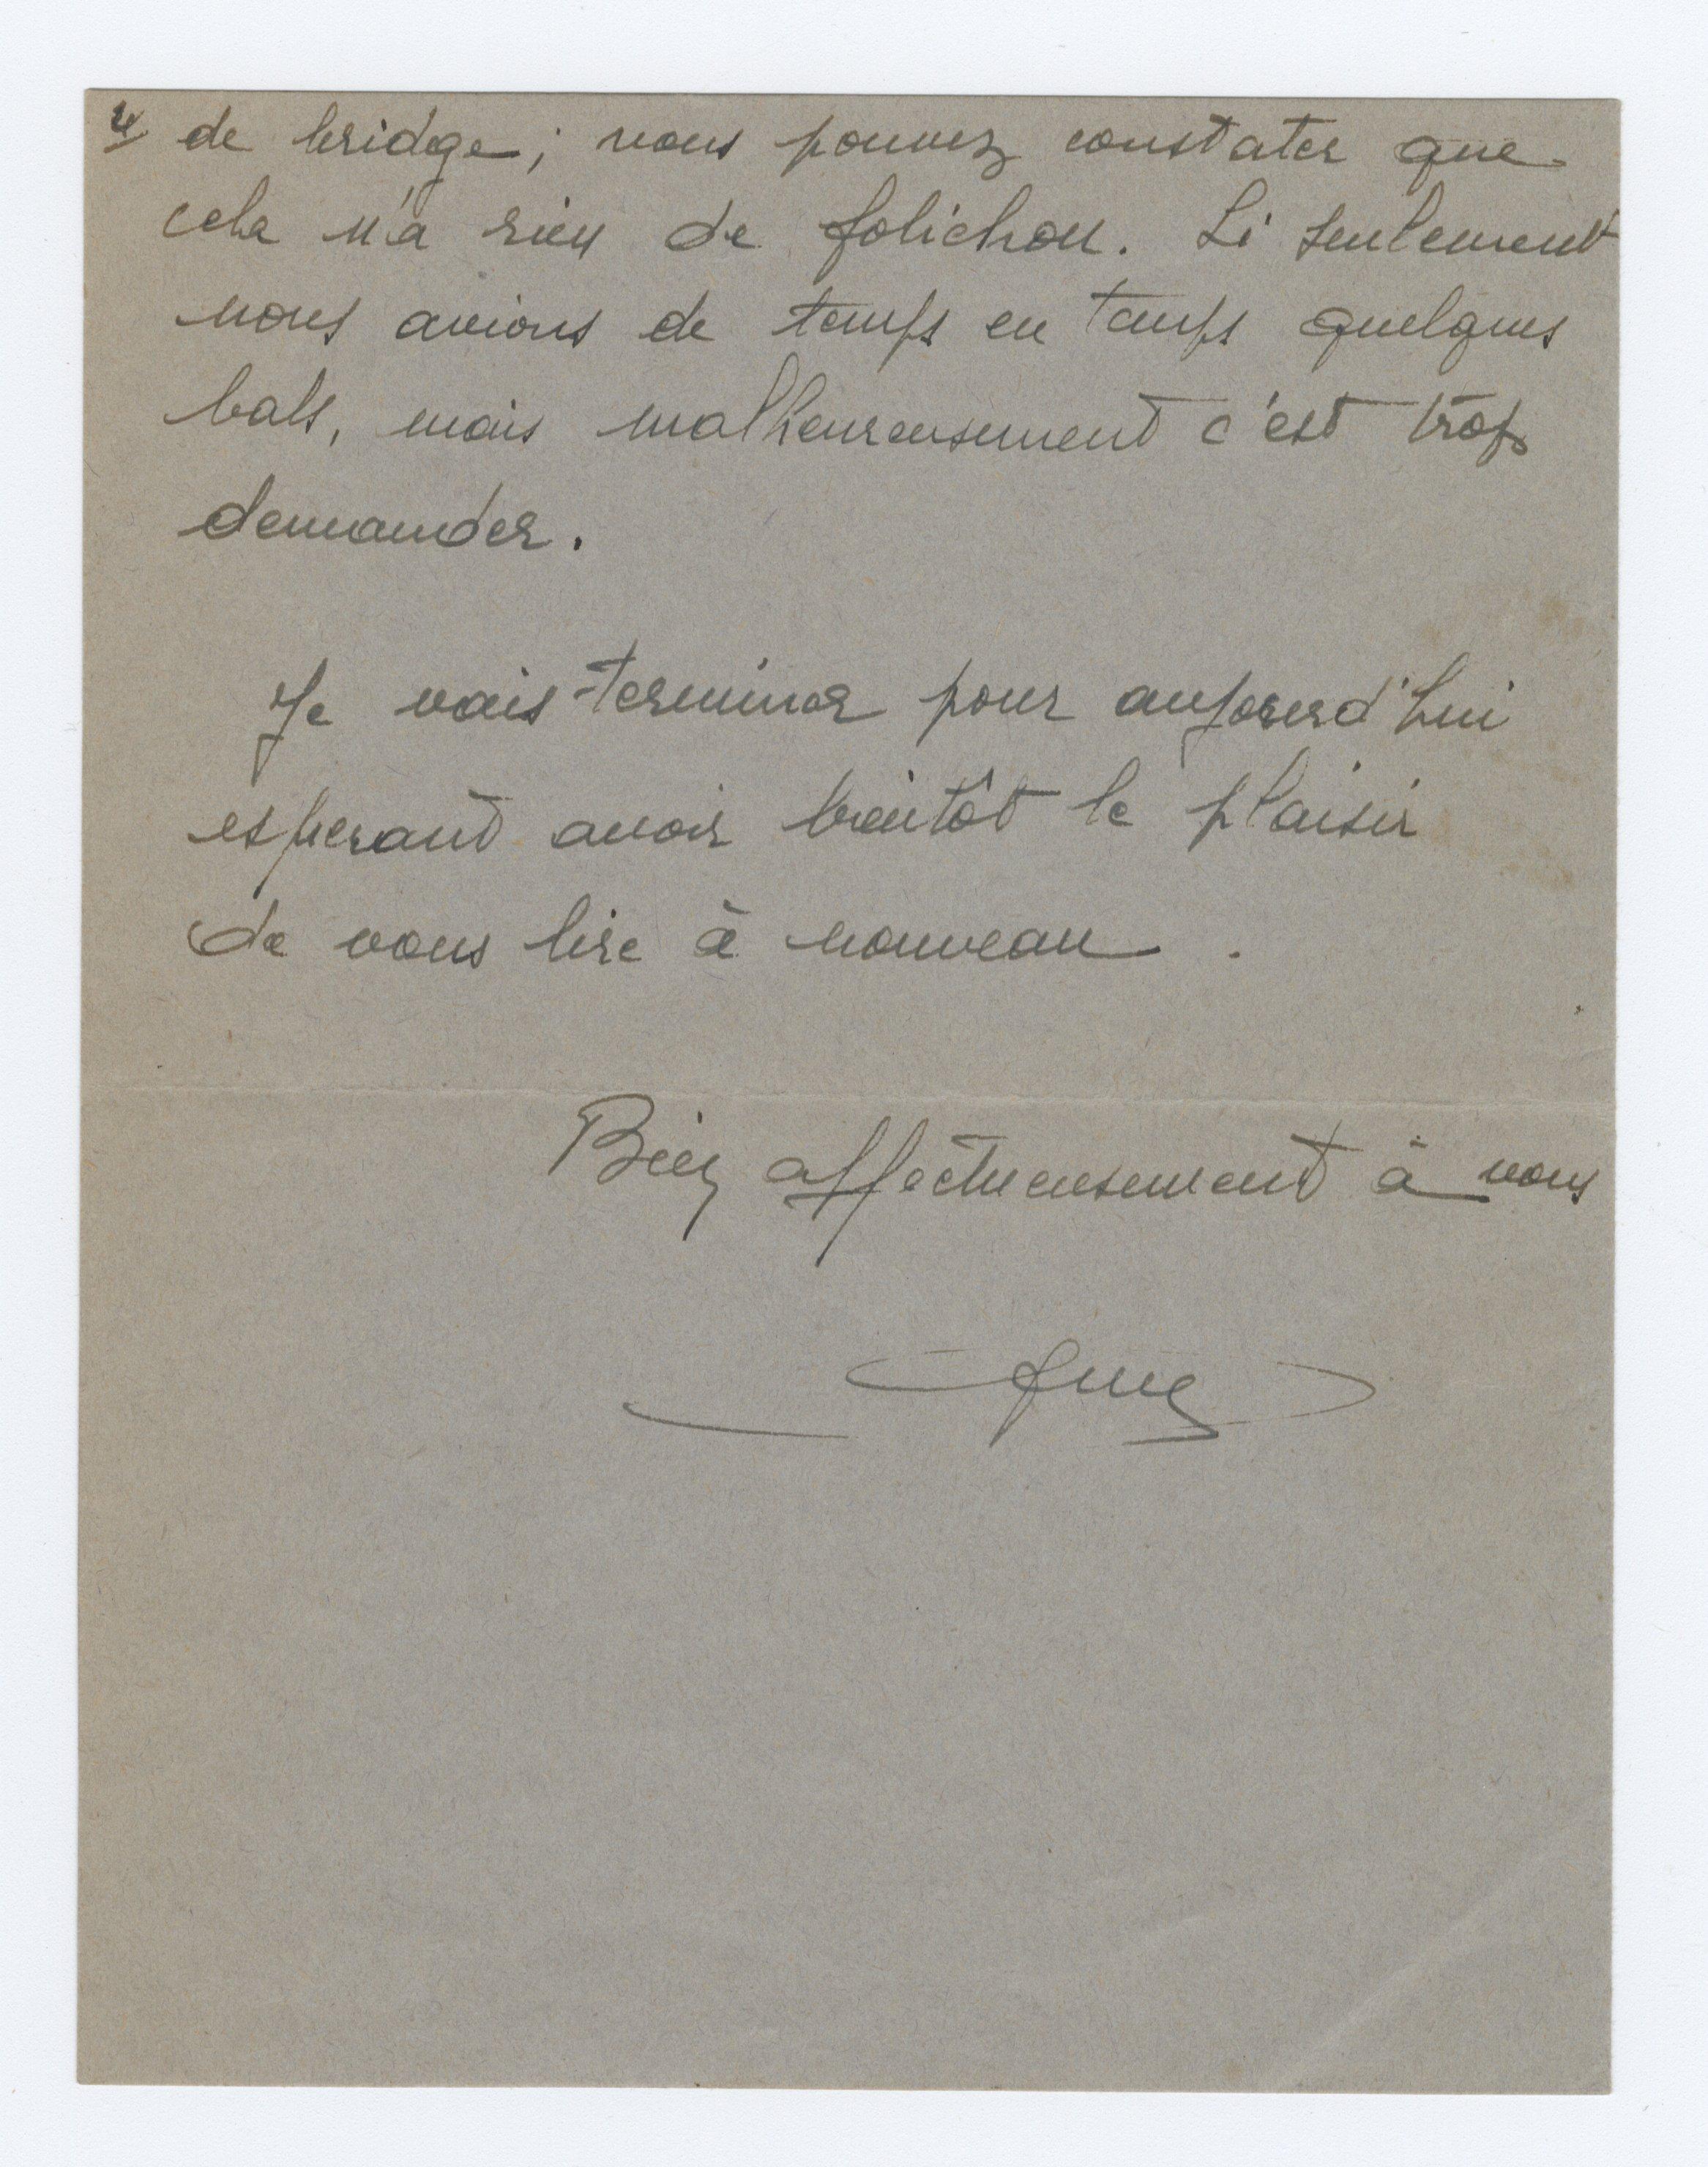 4/ de bridge ; vous pouvez constater que
cela n'a rien de folichon. Si seulement
nous avions de temps en temps quelques
bals, mais malheureusement c'est trop
demander.
Je vais terminer pour aujourd'hui
esperant avoir bientôt le plaisir
de vous lire à nouveau .
Bien affectueusement à vous